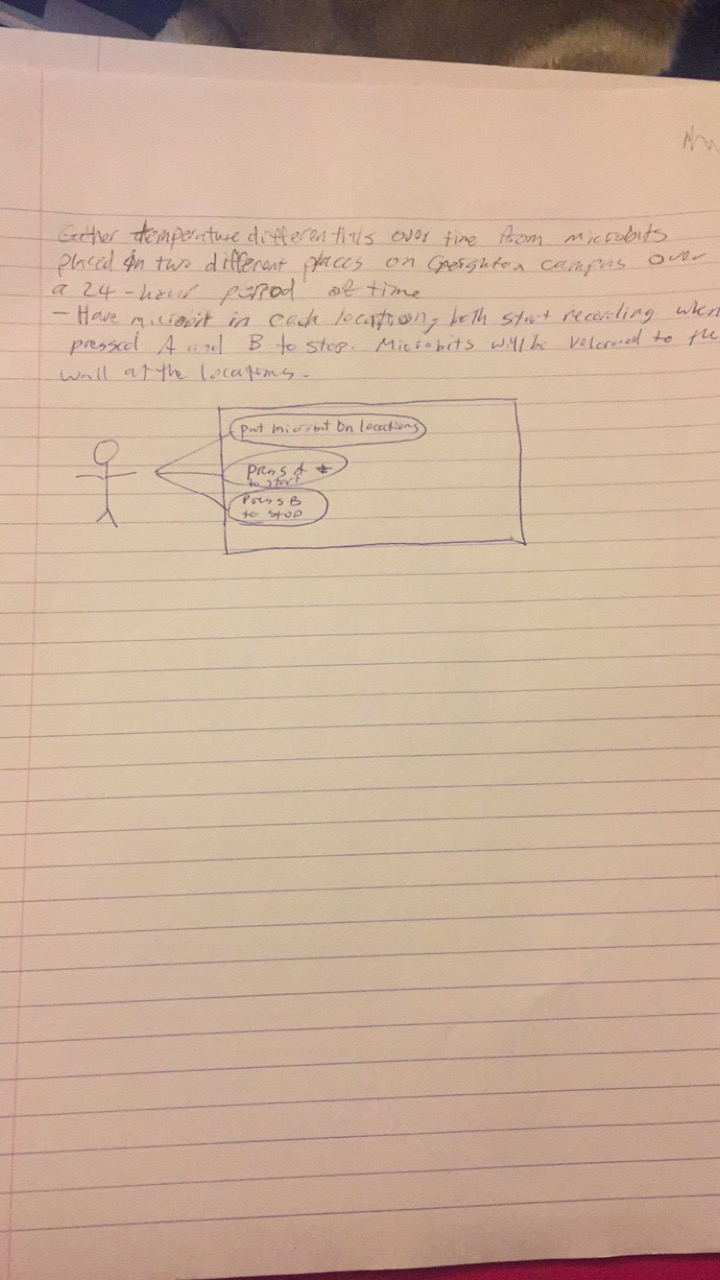 Gather temperature differentials over time from microbits
placed in two different places on Creighton campus over
a 24-hour period of time
- Have microbit in each location, both start recording when
pressed A and B to stop. Microbits will be velcroed to the
wall at the locations.
put microbit on locations
press A
to start
Press B
to stop